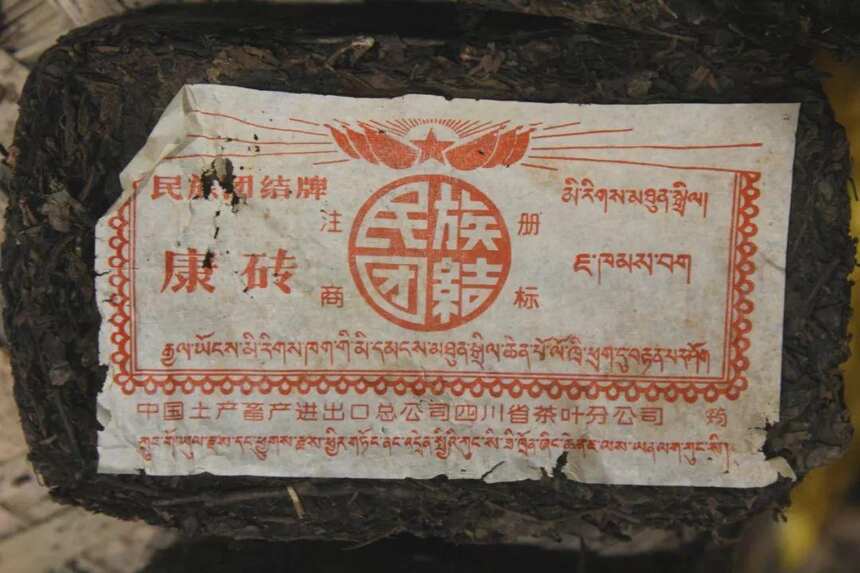 民族团结牌
མི་རིགས་མཐུན་སྒྲིལ།
注册
民族
团結
康砖
ཇ་ཁམས་བག
商标
རྒྱལ་ཡོངས་མི་རིགས་ཁག་གི་མི་དམངས་མཐུན་སྒྲིལ་ཆེན་པོ་ལོ་ཁྲི་ཕྲག་ཏུ་བརྟན་པར་ཤོག
中国土产畜产进出口总公司四川省茶叶分公司